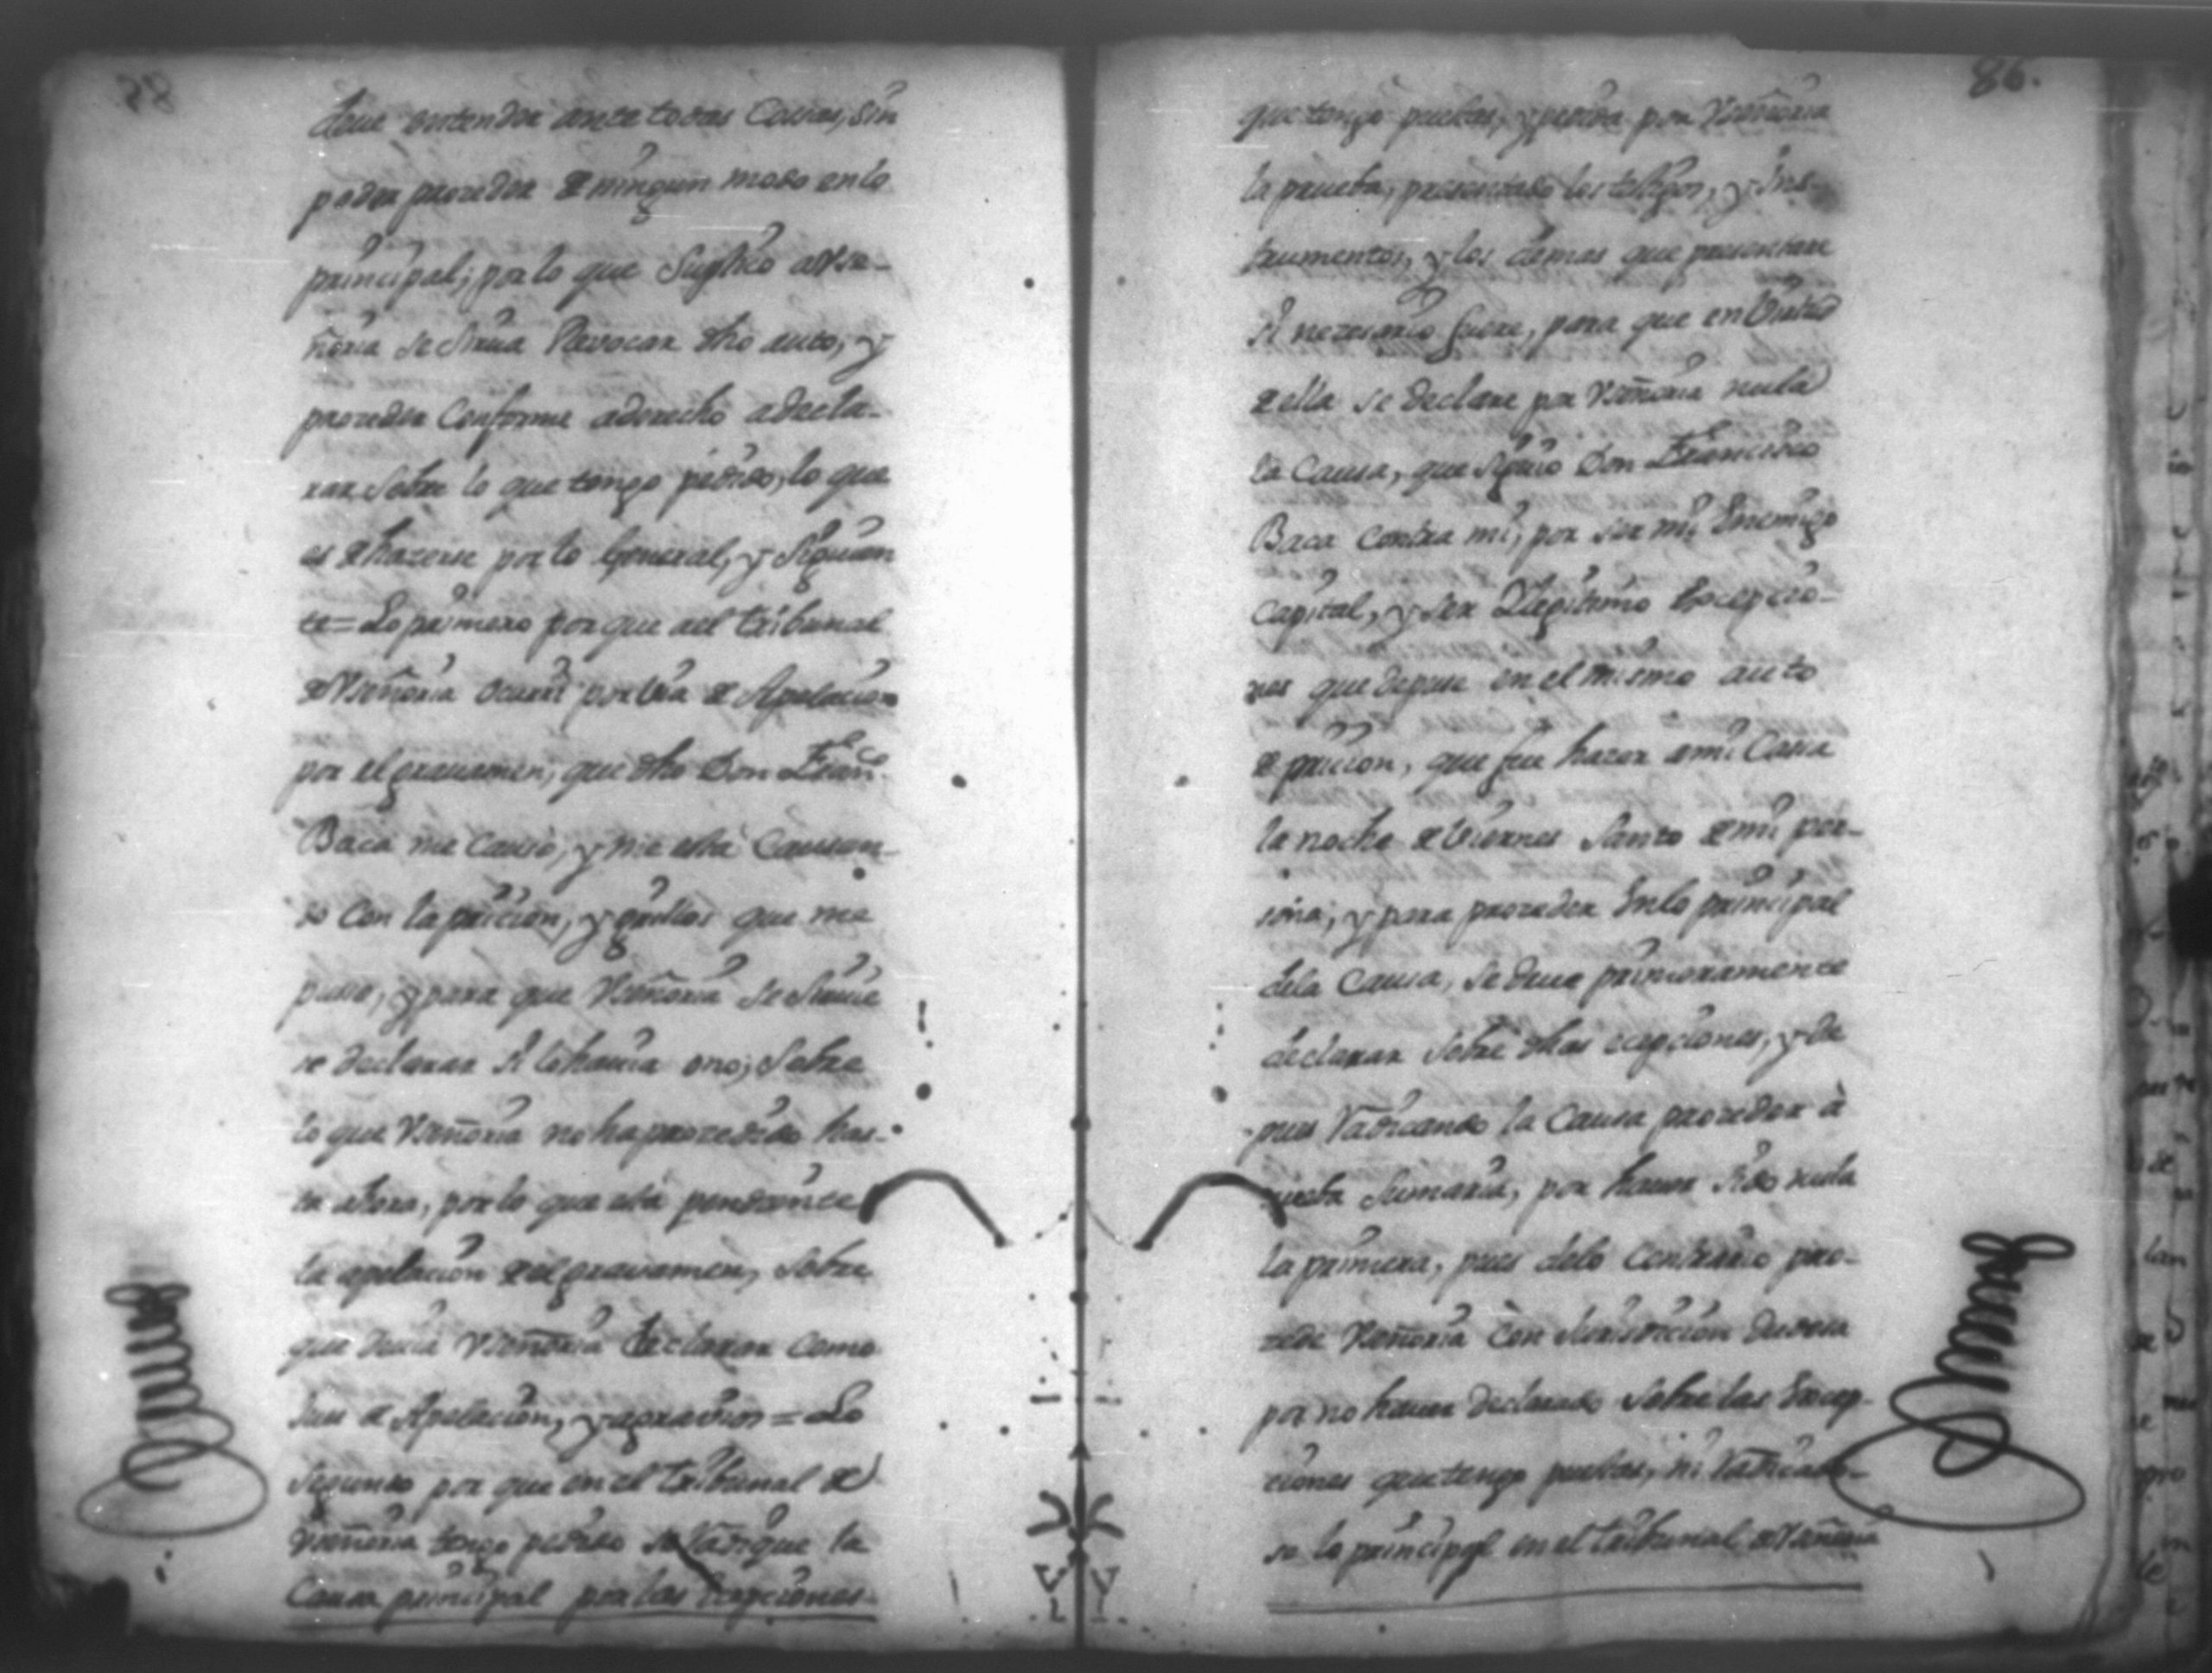 deue entender ante todas Cosas, sin
poder proceder de ningun modo en lo
principal; por lo que Suplico a Vse-
ñoria se sirua Revocar dho auto, y
proceder Conforme a derecho a decla-
rar sobre lo que tengo pedido, lo que
es de hazerse por lo General, y Siguien
te = Lo primero por que a el tribunal
de Vseñoria ocurri por via de Apelacion
por el grauamen, que dho Don Franco.
Baca me Causó, y me está Causan-
do con la pricion, y grillos que me
puso, y para que Vseñoria se Siruie
se declarar si lo hauia o no; Sobre
lo que Vseñoria no ha procedido has-
ta ahora, por lo que está pendiente
la apelacion de el grauamen, Sobre
que deuia Vseñoria declarar como
Juez de Apelacion, y agrauios = Lo
Segundo por que en el tribunal de
Vseñoria tengo pedido se radique la
Causa principal por las Ecepciones
86.
que tengo puestas, y reciva por Vseñoria
la prueba, presentado los testigos, y Ins-
trumentos, y los demas que presentare
si nezesario fuere, para que en Virtud
de ella se declare por Vseñoria nula
la Causa, que siguio Don Francisco
Baca contra mi, por ser mi Enemigo
Capital, y ser Legitimo Excepcio-
nes que depuse en el mismo auto
de pricion, que fue hazer a mi Casa
la noche de Viernes Santo de mi per-
sona; y para proceder En lo principal
dela Causa, se deue primeramente
declarar sobre dhas ecepciones, y des
pues Radicando la Causa proceder à
nueba Sumaria, por hauer sido nula
la primera, pues delo contrario pro-
zede Vseñoria con Jurisdicion
por no hauer declarado sobre las Excep-
ciones que tengo puestas, ni Radicado-
se lo principal en el tribunal de Vseñoria